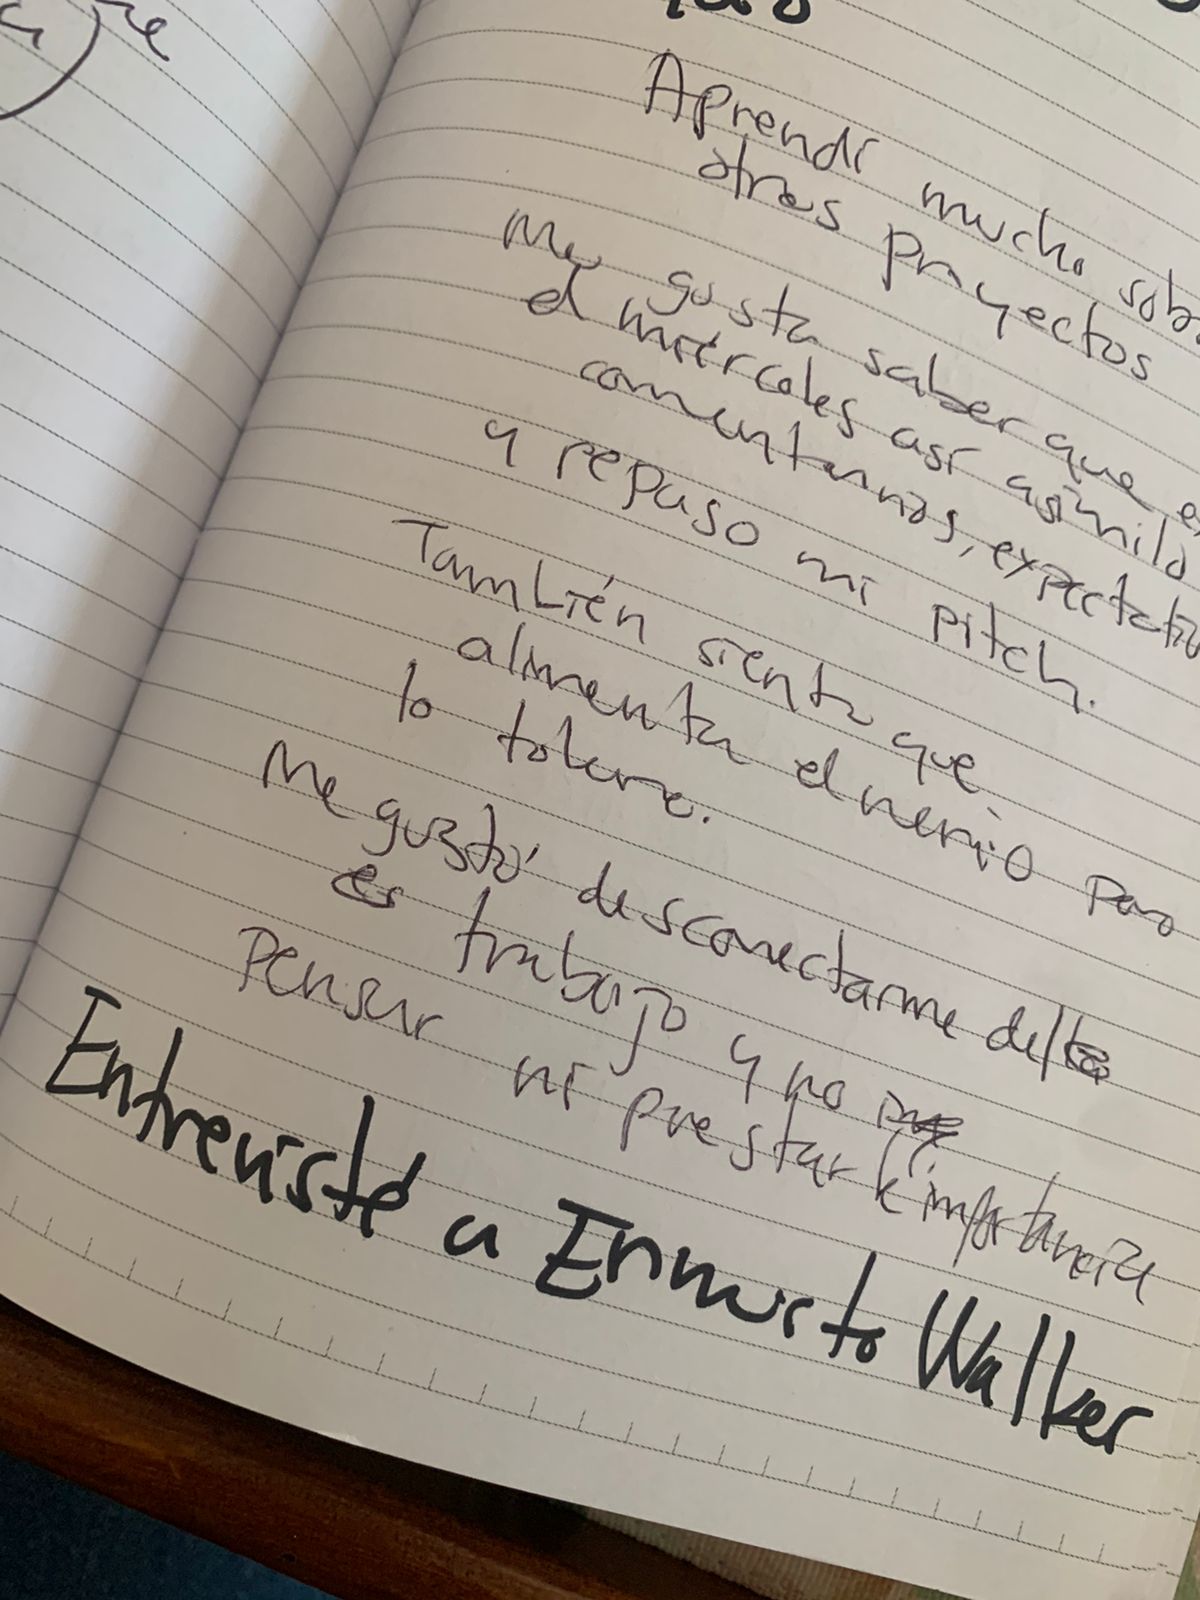 Aprendí mucho sob
otros proyectos
Me gusta saber que e
el miércoles así asimilo
comentarios, expectativ
y repaso mi pitch.
También siento que
alimenta el nervio pero
lo tolero.
Me gustó desconectarme del
trabajo y no
pensar ni prestarle importancia
Entrevisté a Ernesto Walker